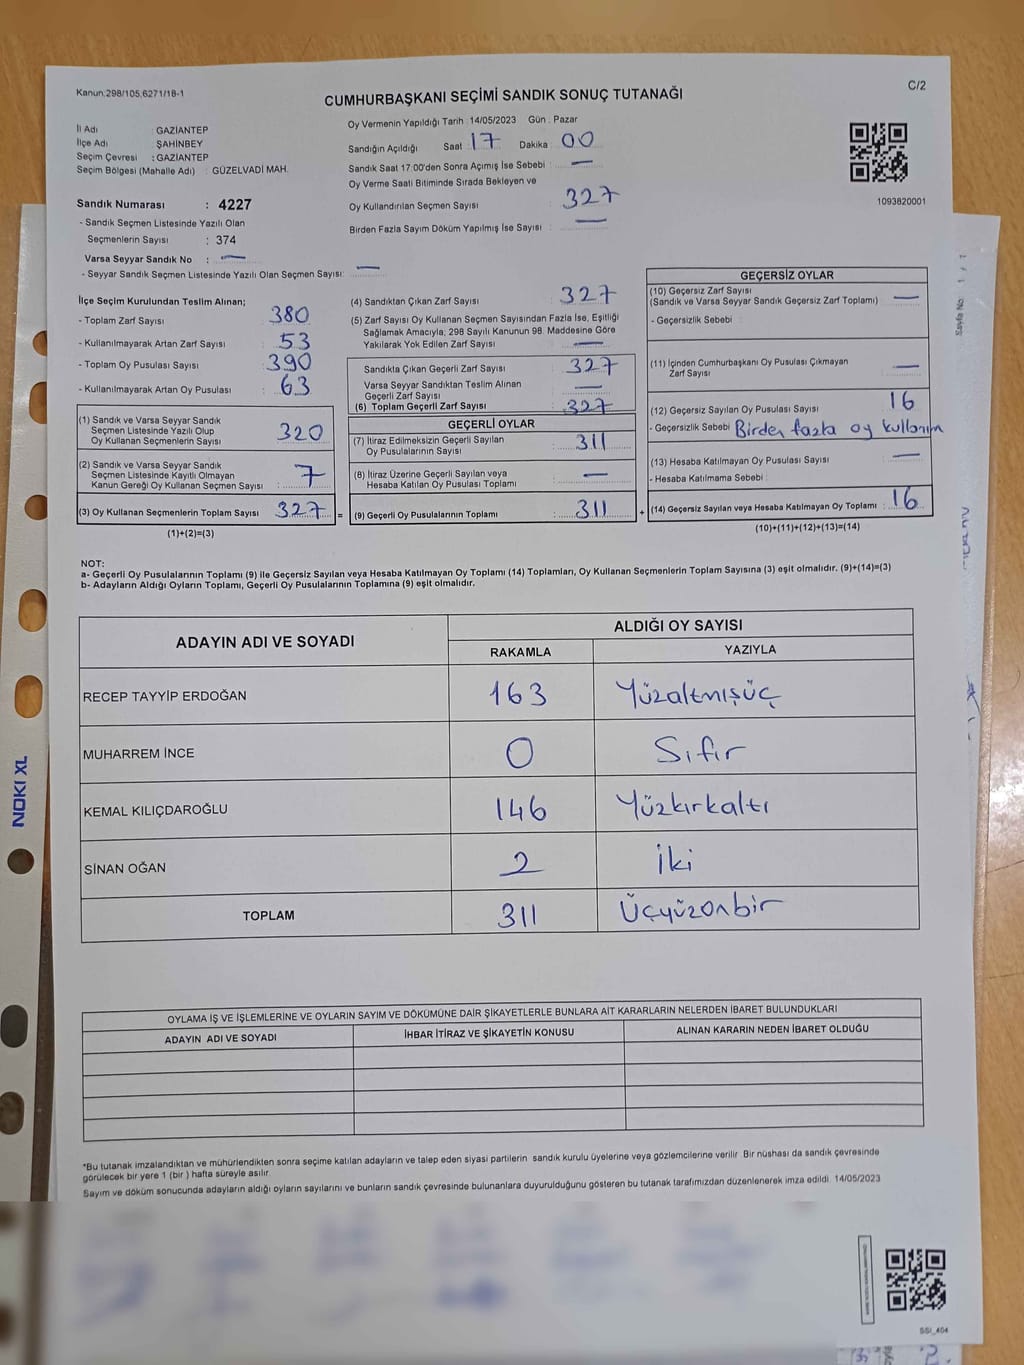 Kanun.298/105,6271/18-1
C/2
CUMHURBAŞKANI SEÇİMİ SANDIK SONUÇ TUTANAĞI
İl Adı : GAZİANTEP
İlçe Adı ŞAHİNBEY
Seçim Çevresi : GAZİANTEP
Seçim Bölgesi (Mahalle Adı) : GÜZELVADİ MAH.
Oy Vermenin Yapıldığı Tarih 14/05/2023 Gün : Pazar
Sandığın Açıldığı Saat 17 Dakika 00
Sandık Saat 17:00'den Sonra Açımış İse Sebebi : —
Oy Verme Saati Bitiminde Sırada Bekleyen ve
Oy Kullandırılan Seçmen Sayısı : 327
Birden Fazla Sayım Döküm Yapılmış İse Sayısı : —
1093820001
Sandık Numarası : 4227
- Sandık Seçmen Listesinde Yazılı Olan
Seçmenlerin Sayısı : 374
Varsa Seyyar Sandık No : —
- Seyyar Sandık Seçmen Listesinde Yazılı Olan Seçmen Sayısı: —
İlçe Seçim Kurulundan Teslim Alınan;
- Toplam Zarf Sayısı : 380
- Kullanılmayarak Artan Zarf Sayısı : 53
- Toplam Oy Pusulası Sayısı : 390
- Kullanılmayarak Artan Oy Pusulası : 63
(1) Sandık ve Varsa Seyyar Sandık
Seçmen Listesinde Yazılı Olup
Oy Kullanan Seçmenlerin Sayısı : 320
(2) Sandık ve Varsa Seyyar Sandık
Seçmen Listesinde Kayıtlı Olmayan
Kanun Gereği Oy Kullanan Seçmen Sayısı : 7
(3) Oy Kullanan Seçmenlerin Toplam Sayısı : 327 =
(1)+(2)=(3)
(4) Sandıktan Çıkan Zarf Sayısı : 327
(5) Zarf Sayısı Oy Kullanan Seçmen Sayısından Fazla İse, Eşitliği
Sağlamak Amacıyla; 298 Sayılı Kanunun 98. Maddesine Göre
Yakılarak Yok Edilen Zarf Sayısı : —
Sandıkta Çıkan Geçerli Zarf Sayısı : 327
Varsa Seyyar Sandıktan Teslim Alınan
Geçerli Zarf Sayısı : —
(6) Toplam Geçerli Zarf Sayısı : 327
GEÇERLİ OYLAR
(7) İtiraz Edilmeksizin Geçerli Sayılan
Oy Pusulalarının Sayısı : 311
(8) İtiraz Üzerine Geçerli Sayılan veya
Hesaba Katılan Oy Pusulası Toplamı : —
(9) Geçerli Oy Pusulalarının Toplamı : 311 +
GEÇERSİZ OYLAR
(10) Geçersiz Zarf Sayısı
(Sandık ve Varsa Seyyar Sandık Geçersiz Zarf Toplamı) : —
- Geçersizlik Sebebi :
(11) İçinden Cumhurbaşkanı Oy Pusulası Çıkmayan
Zarf Sayısı : —
(12) Geçersiz Sayılan Oy Pusulası Sayısı : 16
- Geçersizlik Sebebi Birden fazla oy kullanım
(13) Hesaba Katılmayan Oy Pusulası Sayısı : —
- Hesaba Katılmama Sebebi :
(14) Geçersiz Sayılan veya Hesaba Katılmayan Oy Toplamı : 16
(10)+(11)+(12)+(13)=(14)
NOT:
a- Geçerli Oy Pusulalarının Toplamı (9) ile Geçersiz Sayılan veya Hesaba Katılmayan Oy Toplamı (14) Toplamları, Oy Kullanan Seçmenlerin Toplam Sayısına (3) eşit olmalıdır. (9)+(14)=(3)
b- Adayların Aldığı Oyların Toplamı, Geçerli Oy Pusulalarının Toplamına (9) eşit olmalıdır.
ADAYIN ADI VE SOYADI
ALDIĞI OY SAYISI
RAKAMLA YAZIYLA
RECEP TAYYİP ERDOĞAN 163 Yüzaltmışüç
MUHARREM İNCE 0 Sıfır
KEMAL KILIÇDAROĞLU 146 Yüzkırkaltı
SİNAN OĞAN 2 İki
TOPLAM 311 Üçyüzonbir
OYLAMA İŞ VE İŞLEMLERİNE VE OYLARIN SAYIM VE DÖKÜMÜNE DAİR ŞİKAYETLERLE BUNLARA AİT KARARLARIN NELERDEN İBARET BULUNDUKLARI
ADAYIN ADI VE SOYADI İHBAR İTİRAZ VE ŞİKAYETİN KONUSU ALINAN KARARIN NEDEN İBARET OLDUĞU
*Bu tutanak imzalandıktan ve mühürlendikten sonra seçime katılan adayların ve talep eden siyasi partilerin sandık kurulu üyelerine veya gözlemcilerine verilir Bir nüshası da sandık çevresinde
görülecek bir yere 1 (bir ) hafta süreyle asılır.
Sayım ve döküm sonucunda adayların aldığı oyların sayılarını ve bunların sandık çevresinde bulunanlara duyurulduğunu gösteren bu tutanak tarafımızdan düzenlenerek imza edildi. 14/05/2023
SSI_404
NOKI XL
Sayfa No: 1 / 1